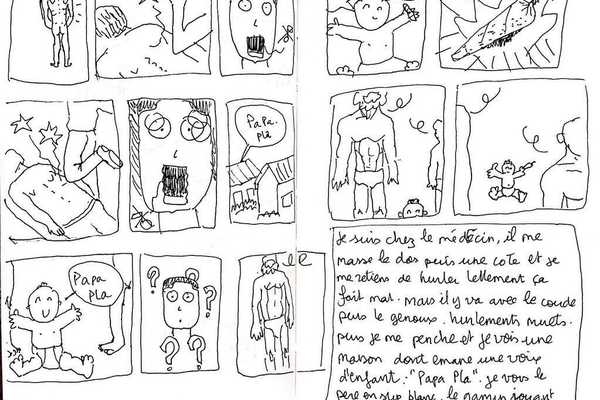 Papa
pla
Papa
Pla
? ? ? ?
Je suis chez le médecin, il me
masse le dos puis une cote et je
me retiens de hurler tellement ça
fait mal. Mais il y va avec le coude
puis le genoux. hurlements muets.
puis je me penche et je vois une
maison dont émane une voix
d'enfant : "Papa Pla". je vois le
père en slip blanc. le gamin jouant